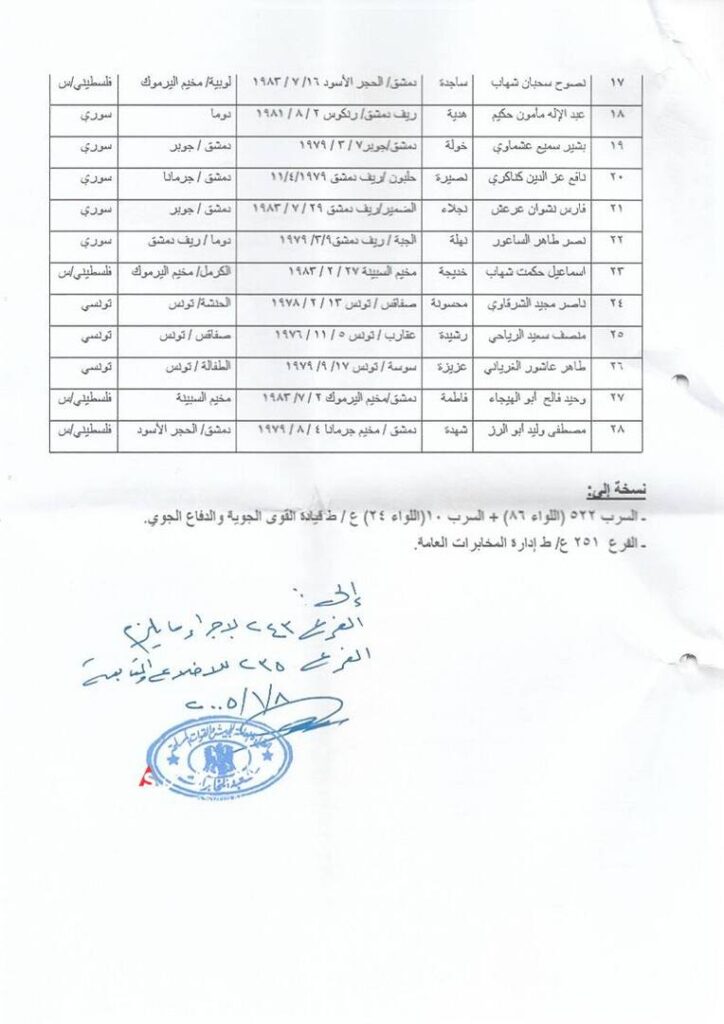 ١٧ نصوح سحبان شهاب ساجدة دمشق/ الحجر الأسود ١٦/ ٧ / ١٩٨٣ لوبية/ مخيم اليرموك فلسطيني/س
١٨ عبد الإله مأمون حكيم هدية ريف دمشق/ رنكوس ٢ / ٨ / ١٩٨١ دوما سوري
١٩ بشير سميع عشماوي خولة دمشق/جوبر ٧ / ٣ / ١٩٧٩ دمشق / جوبر سوري
٢٠ نافع عز الدين كناكري نصيرة حلبون /ريف دمشق ١١/٤/١٩٧٩ دمشق / جرمانا سوري
٢١ فارس نشوان عرعش نجلاء الضمير/ريف دمشق ٢٩ / ٧ / ١٩٨٣ دمشق / جوبر سوري
٢٢ نصر طاهر الساعور نهلة الجبة / ريف دمشق٣/٩/ ١٩٧٩ دوما / ريف دمشق سوري
٢٣ اسماعيل حكمت شهاب خديجة مخيم السبينة ٢٧ / ٢ / ١٩٨٣ الكرمل/ مخيم اليرموك فلسطيني/س
٢٤ ناصر مجيد الشرقاوي محسونة صفاقس / تونس ١٣ / ٢ / ١٩٧٨ الحنشة/ تونس تونسي
٢٥ منصف سعيد الرياحي رشيدة عقارب / تونس ٥ / ١١ / ١٩٧٦ صفاقس / تونس تونسي
٢٦ طاهر عاشور الغرياني عزيزة سوسة / تونس ١٧/ ٩/ ١٩٧٩ الطفالة / تونس تونسي
٢٧ وحيد فالح أبو الهيجاء فاطمة دمشق/مخيم اليرموك ٢ / ٧/ ١٩٨٣ مخيم السبينة فلسطيني/س
٢٨ مصطفى وليد أبو الرز شهدة دمشق / مخيم جرمانا ٤ / ٨ / ١٩٧٩ دمشق/ الحجر الأسود فلسطيني/س
نسخة إلى:
ـ السرب ٥٢٢ (اللواء ٨٦) + السرب ١٠(اللواء ٢٤) ع / ط قيادة القوى الجوية والدفاع الجوي.
ـ الفرع ٢٥١ ع/ ط إدارة المخابرات العامة.
إلى :
الفرع ٢٤٣ لإجراء ما يلزم
الفرع ٢٣٥ للاطلاع والمتابعة
٢٠٠٥/١/٨